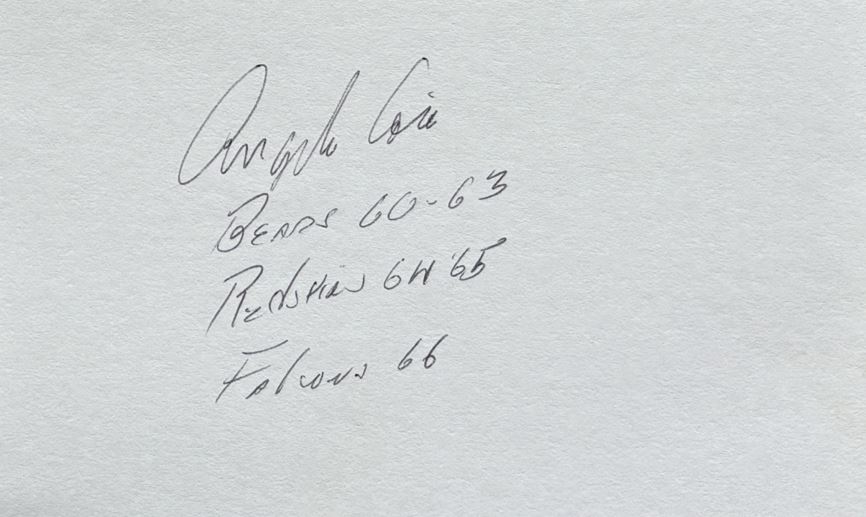 Angelo Coia
BEARS 60-63
Redskins 64 '65
Falcons 66